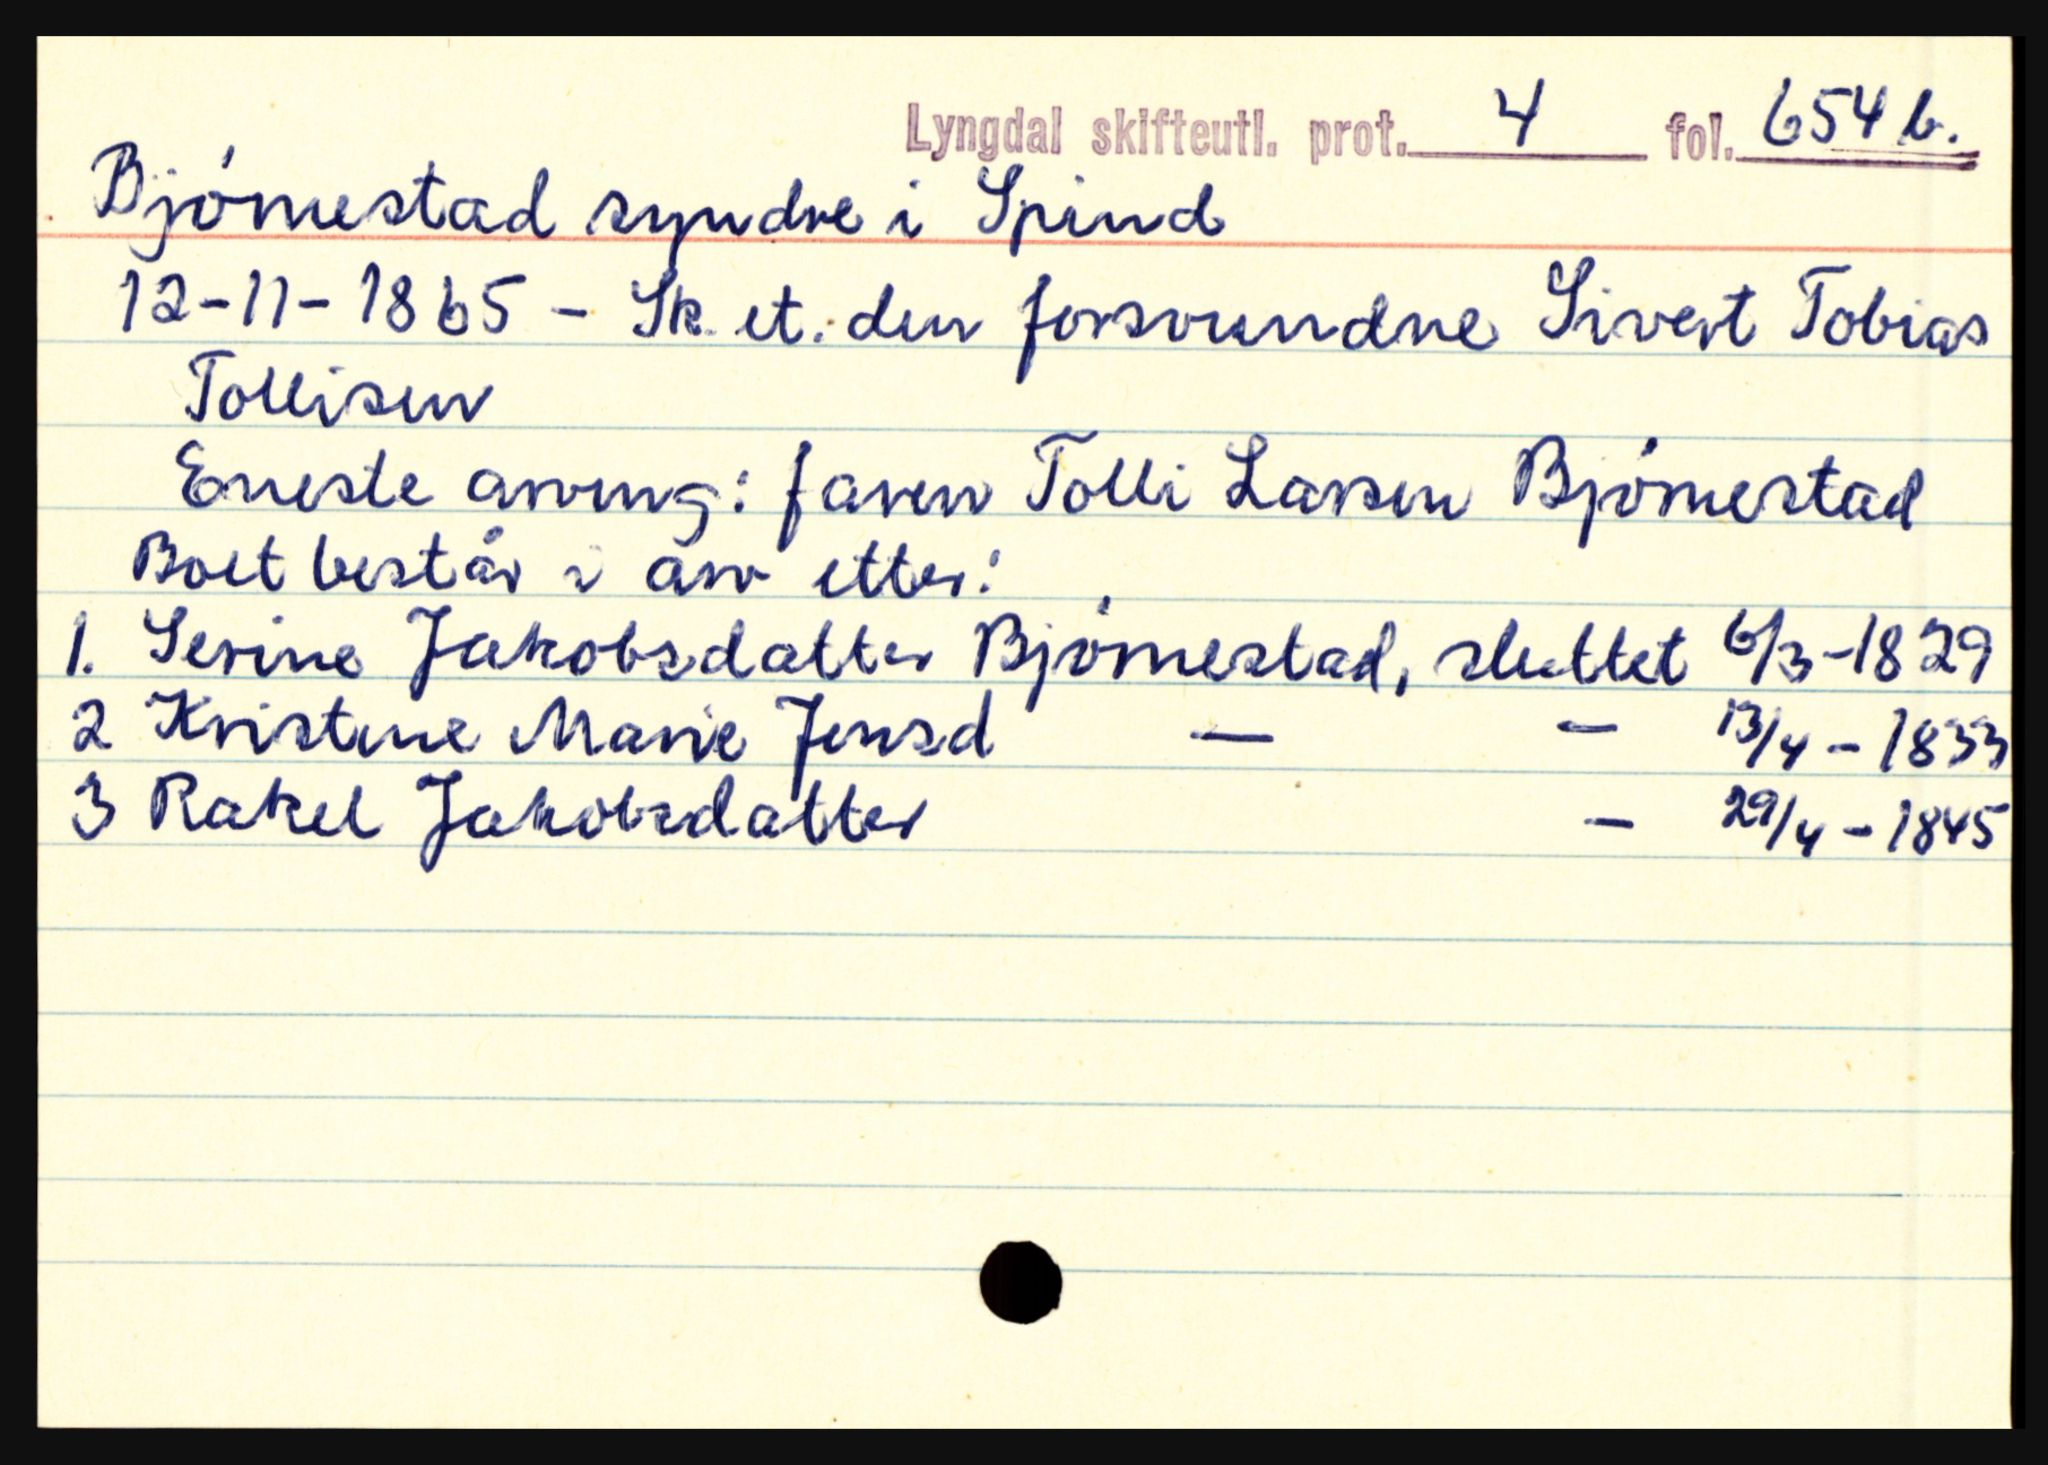 Lyngdal skifteutl. prot. 4 fol. 654 b.
Bjørnestad syndre i Spind
12-11-1865 - Sk. et. den forsvundne Sivert Tobias
Tollisen
Eneste arving: faren Tolli Larsen Bjørnestad
Boet består i arv etter:
1. Serine Jakobsdatter Bjørnestad, sluttet 6/3-1829
2 Kristine Marie Jensd — - 13/4-1833
3 Rakel Jakobsdatter - 29/4-1845